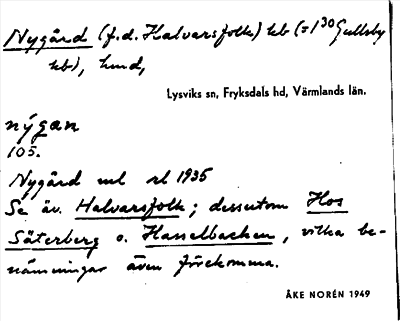 Nygård (f.d. Halvarsfolk) hb (= 1³⁰ Gullsby
hb), hmd,
Lysviks sn, Fryksdals hd, Värmlands län.
nýgan
105.
Nygård ml rl 1935
Se äv. Halvarsfolk; dessutom Hos
Säterberg o. Hasselbacken, vilka be-
nämningar även förekomma.
ÅKE NORÉN 1949